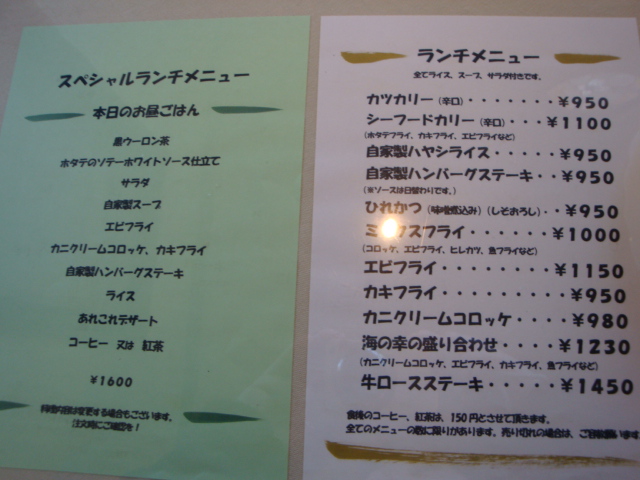 スペシャルランチメニュー
本日のお昼ごはん
黒ウーロン茶
ホタテのソテーホワイトソース仕立て
サラダ
自家製スープ
エビフライ
カニクリームコロッケ、カキフライ
自家製ハンバーグステーキ
ライス
あれこれデザート
コーヒー 又は 紅茶
¥1600
料理内容は変更する場合もございます。
注文時にご確認を!
ランチメニュー
全てライス、スープ、サラダ付きです。
カツカリー(辛口)・・・・・・・¥950
シーフードカリー(辛口)・・・¥1100
(ホタテフライ、カキフライ、エビフライなど)
自家製ハヤシライス・・・・・¥950
自家製ハンバーグステーキ・・¥950
(※ソースは日替わりです。)
ひれかつ(味噌煮込み)(しそおろし)・・¥950
ミックスフライ・・・・・・・¥1000
(コロッケ、エビフライ、ヒレカツ、魚フライなど)
エビフライ・・・・・・・・¥1150
カキフライ・・・・・・・・・¥950
カニクリームコロッケ・・・・¥980
海の幸の盛り合わせ・・・・¥1230
(カニクリームコロッケ、エビフライ、カキフライ、魚フライなど)
牛ロースステーキ・・・・・¥1450
食後のコーヒー、紅茶は、150円とさせて頂きます。
全てのメニューの数に限りがあります。売り切れの場合は、ご容赦願います。